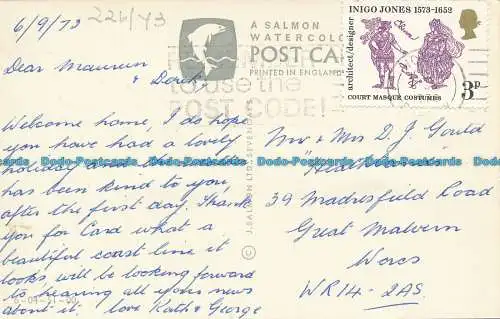 6/9/73
226/43
Dear Maureen
& Derek,
Welcome home, I do hope
you have had a lovely
holiday and the weather
has been kind to you,
after the first day. Thank
you for Card what a
beautiful coast line it
looks will be looking forward
to hearing all your news
about it. love Kath & George
A SALMON
WATERCOLO
POST CA
PRINTED IN ENGLAN
to use the
POST CODE!
© J. SALMON LTD., SEVEN
INIGO JONES 1573-1652
architect/designer
COURT MASQUE COSTUMES
3P
Mr & Mrs D J Gould
"Heathlands"
39 Madresfield Road
Great Malvern
Worcs
WR14-2AS.
Dodo-Postcards Dodo-Postcards Dodo-Postcards Dodo-Postcards
6-09-71-00